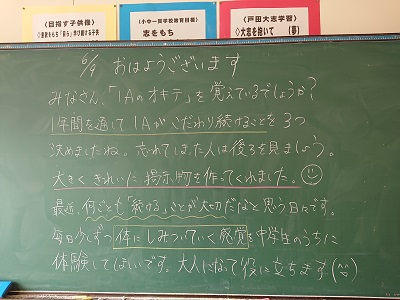 〈目指す子供像〉
〈小中一貫学校教育目標〉
志をもち
〈戸田大志学習〉
◇大志を抱いて 〔夢〕
6/9 おはようございます
みなさん、「1Aのオキテ」を覚えているでしょうか？
1年間を通して1Aがこだわり続けることを3つ
決めましたね。忘れてしまった人は後ろを見ましょう。
大きくきれいに掲示物を作ってくれました。
最近、何ごとも「続ける」ことが大切だなと思う日々です。
毎日少しずつ体にしみついていく感覚を中学生のうちに
体験してほしいです。大人になって役に立ちます(^^)